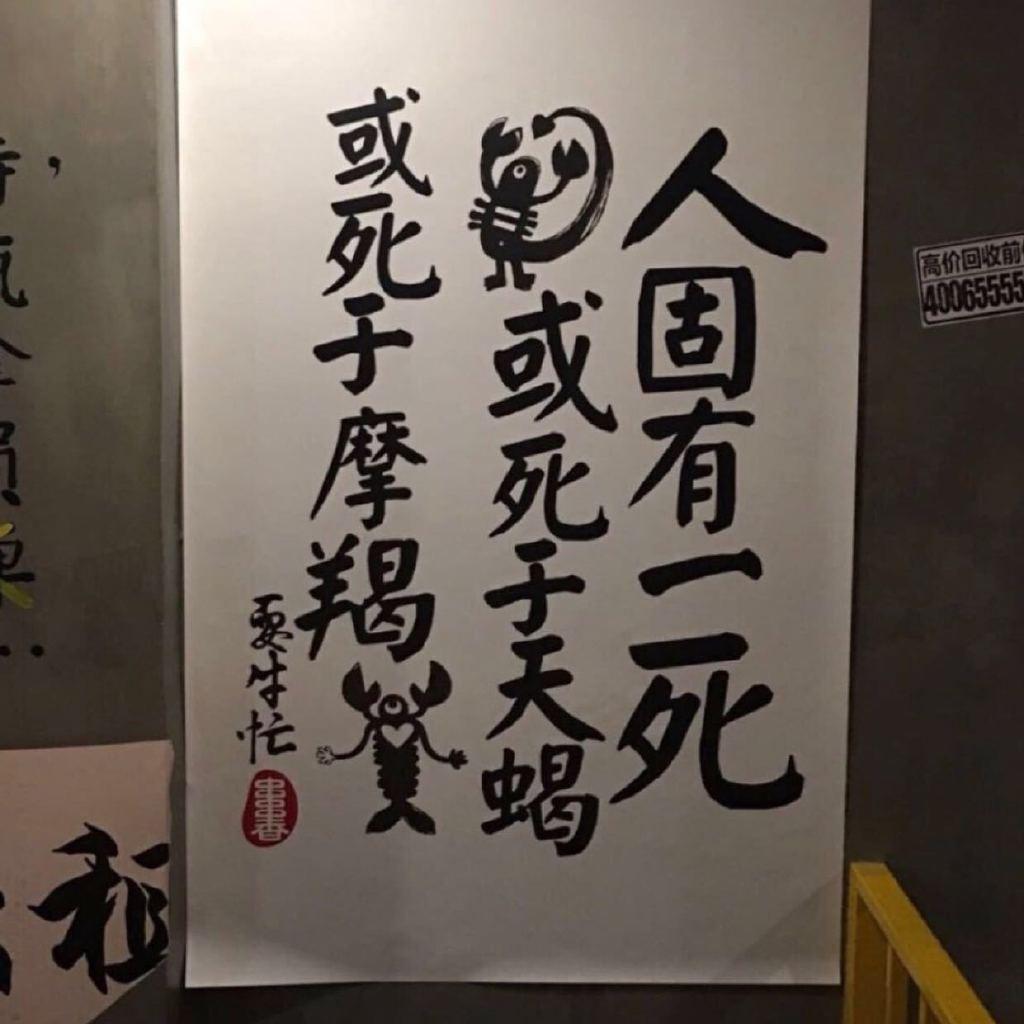 人固有一死
或死于天蝎
或死于摩羯
要牛忙
串串香
高价回收前
40065555
租